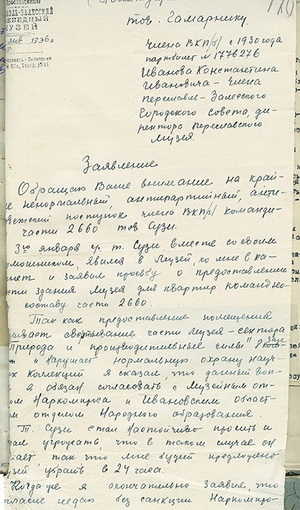 тов. Гамарнику.
МУЗЕЙ
1936 г.
Члена ВКП/б/ с 1930 года
партбилет N 1776276
Иванова Константина
Ивановича – члена
Переславль-Залесского
Городского совета, ди-
ректора Переславского
Музея.
Заявление
Обращаю Ваше внимание на край-
не ненормальный, антипартийный, анти-
ветский поступок члена ВКП/б/ команди-
части 2660 тов Сузи.
3го января ц. т. Сузи вместе со своим
помошником, явился в Музей, ко мне в ка-
нет и заявил просьбу о предоставлении
сти здания Музея для квартир командно-
составу части 2660.
Так как предоставление помещения
свертывание части Музея – сектора
Природа и производительные силы"
и нарушает нормальную охрану науч-
х коллекций я сказал, что данный воп-
я обязан согласовать с Музейным от-
ом Наркомпроса и Ивановским област-
ом отделом Народного образования.
Т. Сузи стал настойчиво просить и
угрожать, что в таком случае он
ает так, что мне будет предложено
убрать в 24 часа.
Когда же я окончательно заявил, что
не дам без санкции Наркомпро-